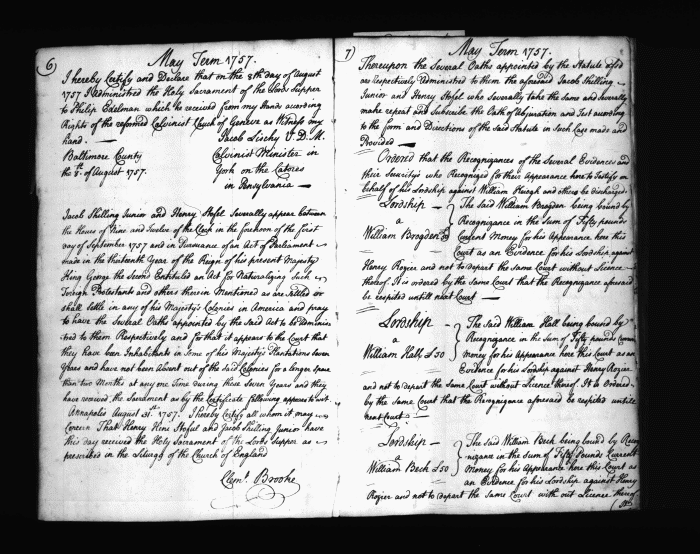 6
May Term 1757.
I hereby Certify and Declare that on the 8th day of August
1757 I administred the Holy Sacrament of the Lords Supper
to Philip Edelman which he received from my Hands according
Rights of the reformed Calvinist Church of Geneve as Witness my
hand.
Jacob Lischy V. D. M.
Baltimore County
Calvinist Minister in
the 8th of August 1757.
York on the Catores
in Pensylvania
Jacob Shilling Junior and Henry Stofel Severally appear between
the Hours of Nine and Twelve of the Clock in the forenoon of the first
day of September 1757 and in Pursuance of an Act of Parliament
made in the thirteenth Year of the Reign of his present Majesty
King George the Second Entituled an Act for Naturalizing such
Foreign Protestants and others therein Mentioned as are settled or
shall settle in any of his Majesty's Colonies in America and pray
to have the Several Oaths appointed by the said Act to be adminis
tred to them Respectively and for that it appears to the Court that
they have been Inhabitants in some of his Majesty's Plantations Seven
Years and have not been Absent out of the said Colonies for a longer space
than two Months at any one Time During these Seven Years and they
have received the Sacrament as by the Certificate following appears to wit
Annapolis August 31st 1757. I hereby Certify all whom it may
Concern That Henry Stofel and Jacob Shilling Junior have
this day received the Holy Sacrament of the Lords Supper as
prescribed in the Liturgy of the Church of England
Clemt. Brooke
7
May Term 1757.
Thereupon the Several Oaths appointed by the Statute
are Respectively administred to them the aforesaid Jacob Shilling
Junior and Henry Stofel who severally take the same and severally
make repeat and Subscribe the Oath of Abjuration and Test according
to the form and Directions of the said Statute in such Case made and
Provided
Ordered that the Recognizances of the Several Evidences and
their Security's who Recognized for their appearance here to Testify on
behalf of his Lordship against William Pough and others be Discharged.
Lordship
The said William Brogden being bound by
a
Recognizance in the Sum of Fifty pounds
William Brogden
Current Money for his Appearance here this
Court as an Evidence for his Lordship against
Henry Rozier and not to depart the same Court without Licence
thereof It is ordered by the same Court that the Recognizance aforesaid
be respited untill next Court
Lordship
The said William Hall being bound by
a
Recognizance in the sum of Fifty pounds Current
William Hall £50
Money for his Appearance here this Court as an
Evidence for his Lordship against Henry Rozier
and not to depart the same Court without Licence thereof It is Ordered
by the same Court that the Recognizance aforesaid be respited untill
next Court
Lordship
The said William Beck being bound by Recog
a
nizance in the sum of Fifty Pounds Current
William Beck £50
Money for his Appearance here this Court as
an Evidence for his Lordship against Henry
Rozier and not to depart the same Court with out Licence thereof